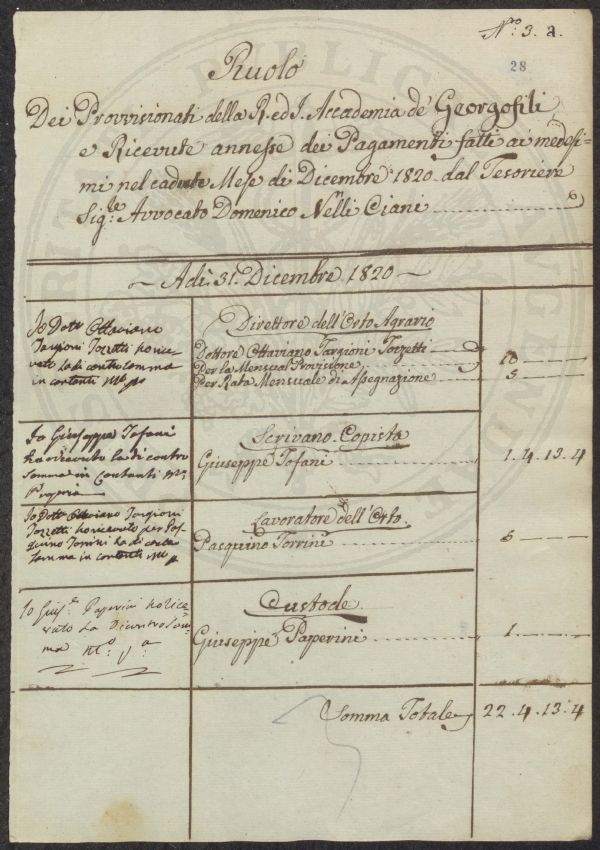 Nro: 3. a.
28
Ruolo
Dei Provvisionati della R. ed I. Accademia de' Georgofili
e Ricevute annesse dei Pagamenti fatti ai medesi-
mi nel caduto Mese di Dicembre 1820 dal Tesoriere
Sig:re Avvocato Domenico Nelli Ciani
Adì: 31. Dicembre 1820
Io Dott Ottaviano
Targioni Tozzetti ho rice-
vuto la di contro somma
in contanti Mo po
Direttore dell'Orto Agrario
Dottore Ottaviano Targioni Tozzetti
Per la Mensual Provisione 10
Per Rata Mensuale di Assegnazione 5
Io Giuseppe Tofani
ho ricevuto la di contro
somma in Contanti Mo
Propria
Scrivano Copista
Giuseppe Tofani 1. 4. 13. 4
Io Dott Ottaviano Targioni
Tozzetti ho ricevuto per Pas
quino Torrini la di contro
somma in contanti Mo p
Lavoratore dell'Orto
Pasquino Torrini 5
Io Giuse. Paperini ho rice-
vuto La Dicontro Som-
ma Mo. pa.
Custode
Giuseppe Paperini 1.
Somma Totale 22. 4. 13. 4